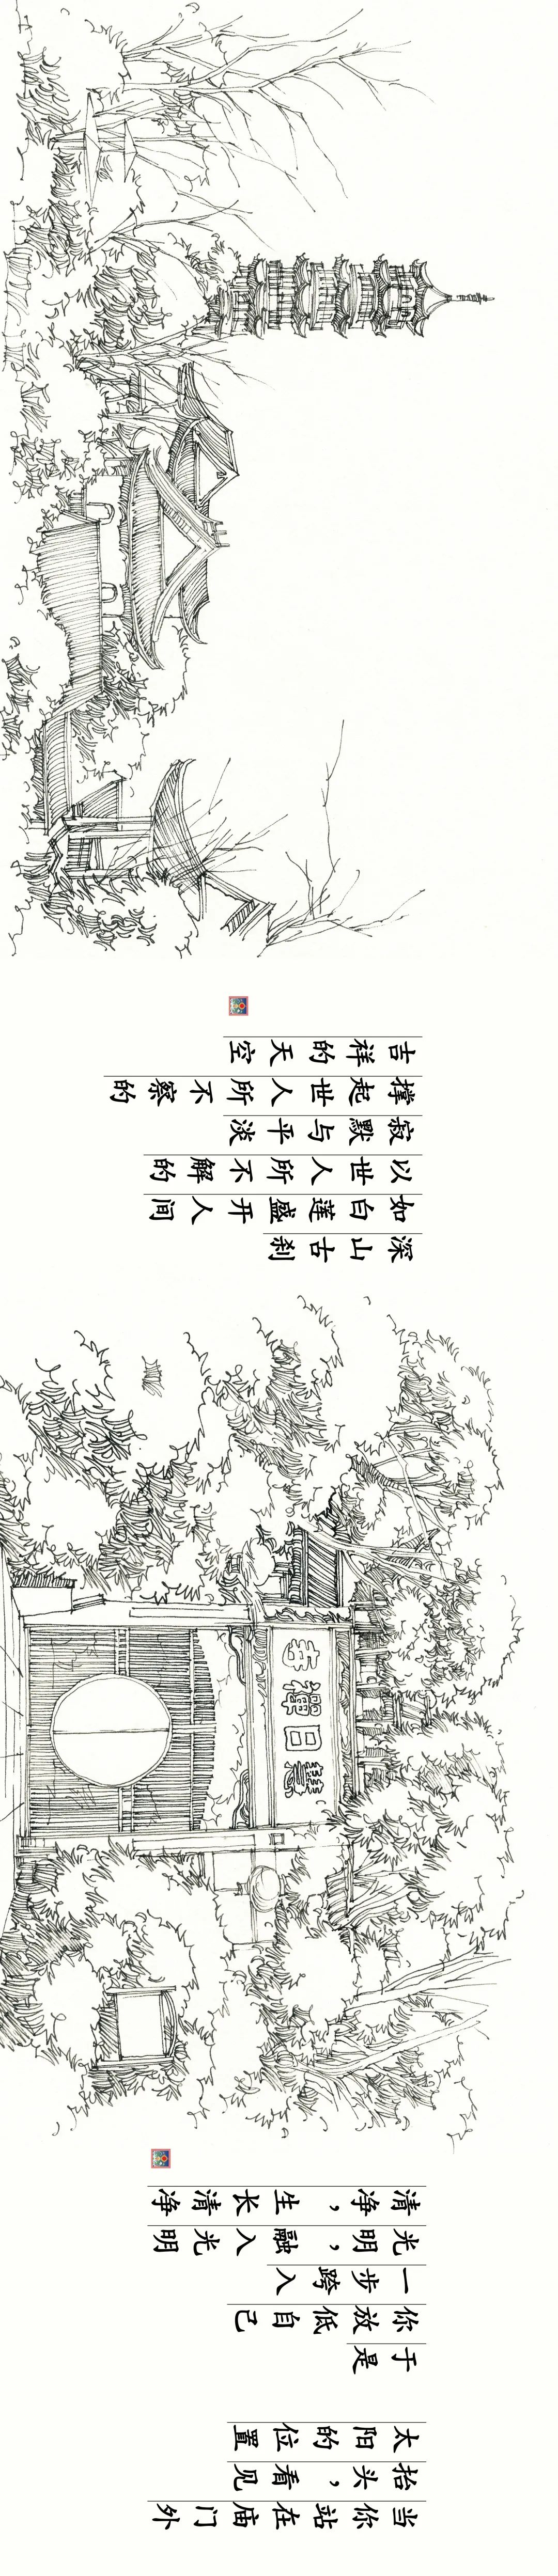 当你站在庙门外
抬头，看见
太阳的位置
于是
你放低自己
一步跨入
光明，融入光明
清净，生长清净
慧日禪寺
深山古刹
如白莲盛开人间
以世人所不解的
寂默与平淡
撑起世人所不察的
吉祥的天空